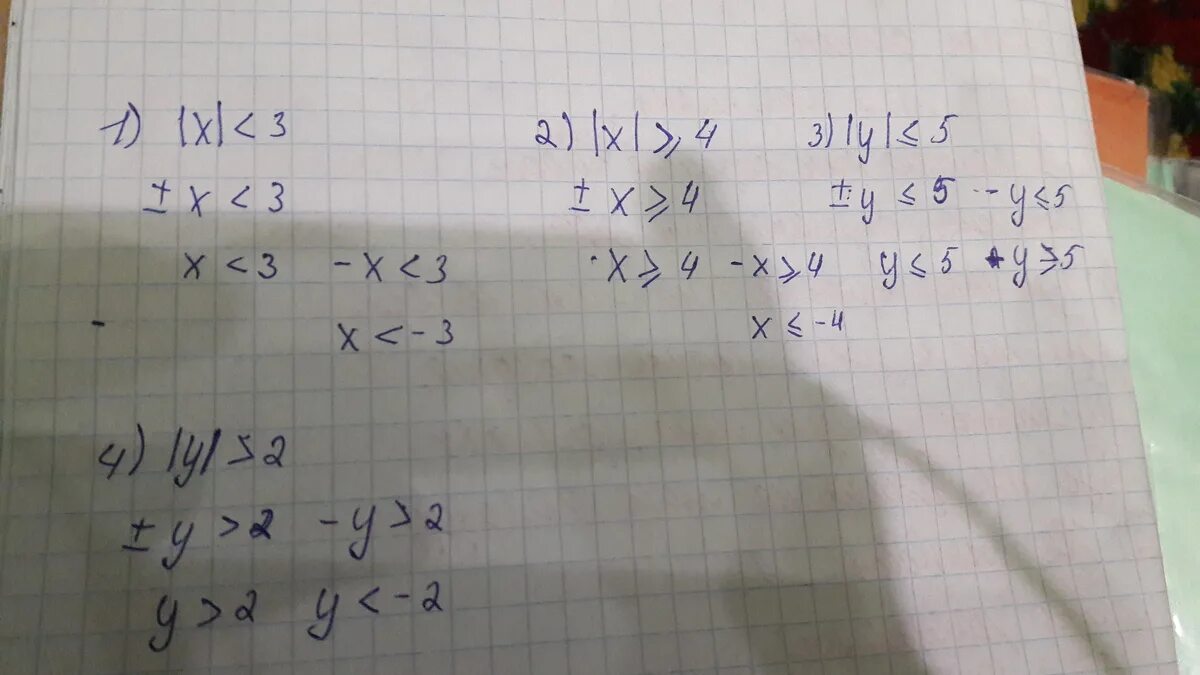 1) |x| < 3
± x < 3
x < 3 - x < 3
x < - 3
2) |x| ⩾ 4
± x ⩾ 4
x ⩾ 4 - x ⩾ 4
x ⩽ -4
3) |y| ≤ 5
± y ≤ 5 - y ≤ 5
y ≤ 5 y ≥ 5
4) |y| > 2
± y > 2 - y > 2
y > 2 y < - 2